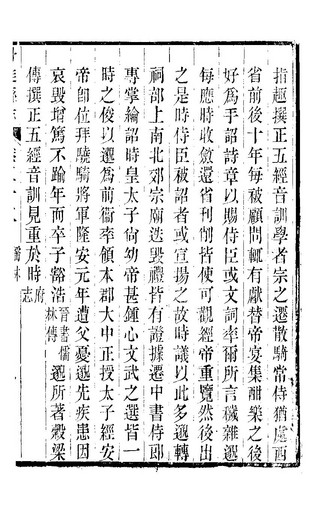 指趣撰正五經音訓學者宗之遷散騎常侍猶處西
省前後十年每被顧問輒有獻替帝宴集酣樂之後
好爲手詔詩章以賜侍臣或文詞率爾所言穢雜邈
每應時收斂還省刊削皆使可觀經帝重覽然後出
之是時侍臣被詔者或宣揚之故時議以此多邈轉
祠部上南北郊宗廟迭毀禮皆有證據遷中書侍郎
專掌綸詔時皇太子尚幼帝甚鍾心文武之選皆一
時之俊以邈爲前衛率領本郡大中正授太子經安
帝卽位拜驍騎將軍隆安元年遭父憂邈先疾患因
哀毀增篤不踰年而卒子豁浩晉書儒林傳邈所著穀梁
傳撰正五經音訓見重於時府志
儒林